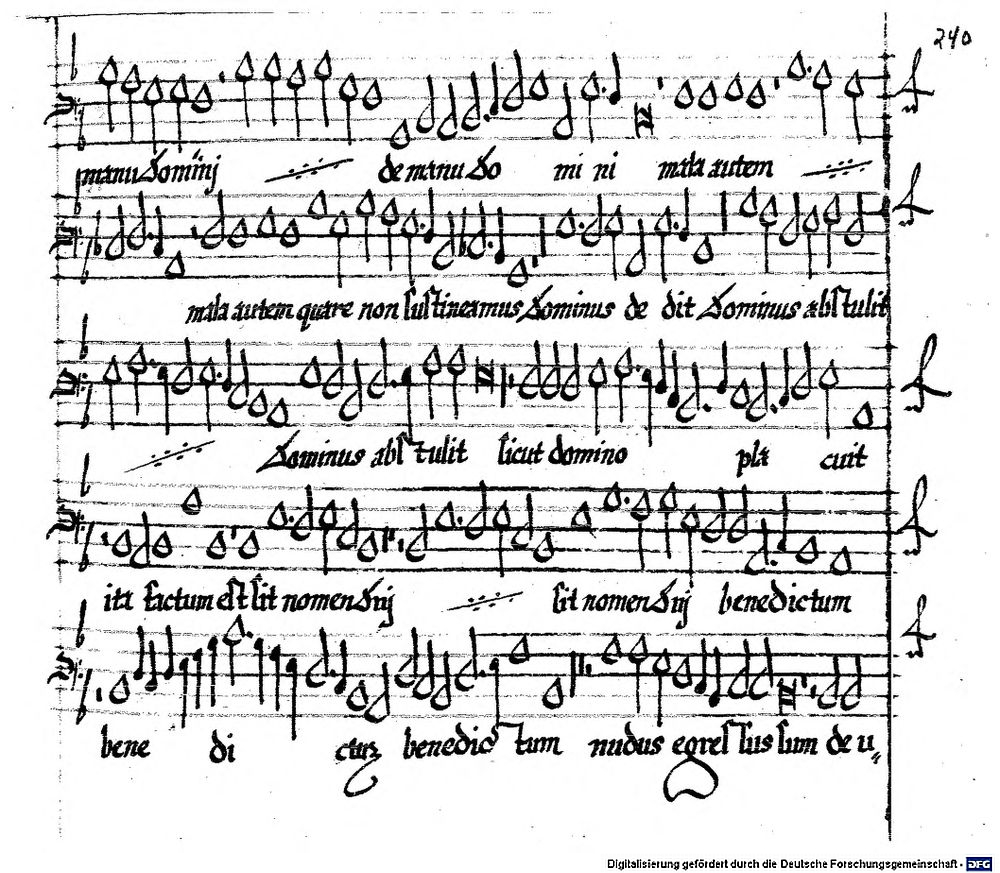 240
manu Dominj de manu Do mi ni mala autem
mala autem quare non sustineamus Dominus de dit Dominus abstulit
Dominus abstulit sicut domino pla cuit
ita factum est sit nomen Dnj sit nomen Dnj benedictum
bene di benedic tum nudus egressus sum de u
Digitalisierung gefördert durch die Deutsche Forschungsgemeinschaft - DFG